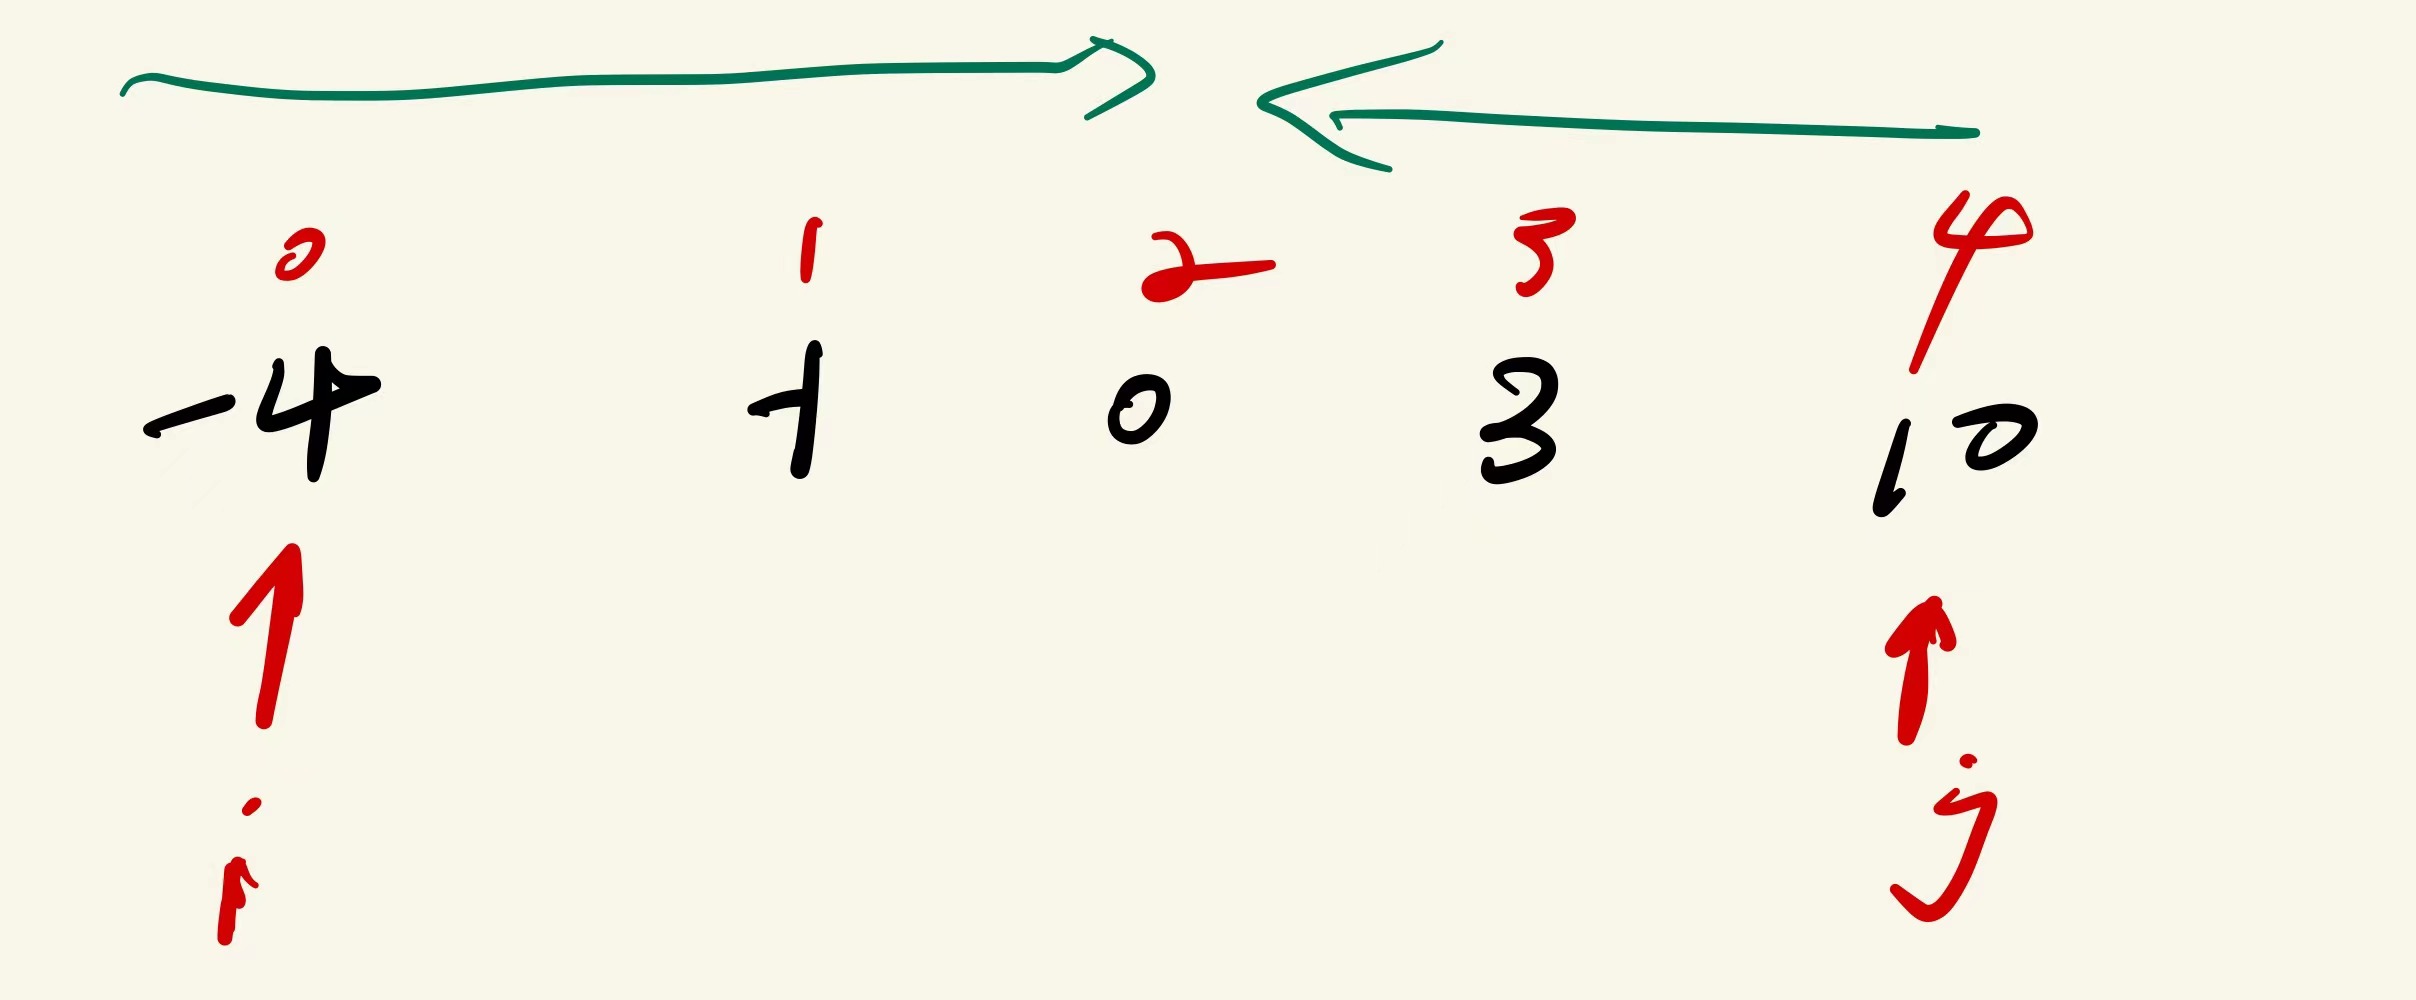 0 1 2 3 4
-4 -1 0 3 10
i j